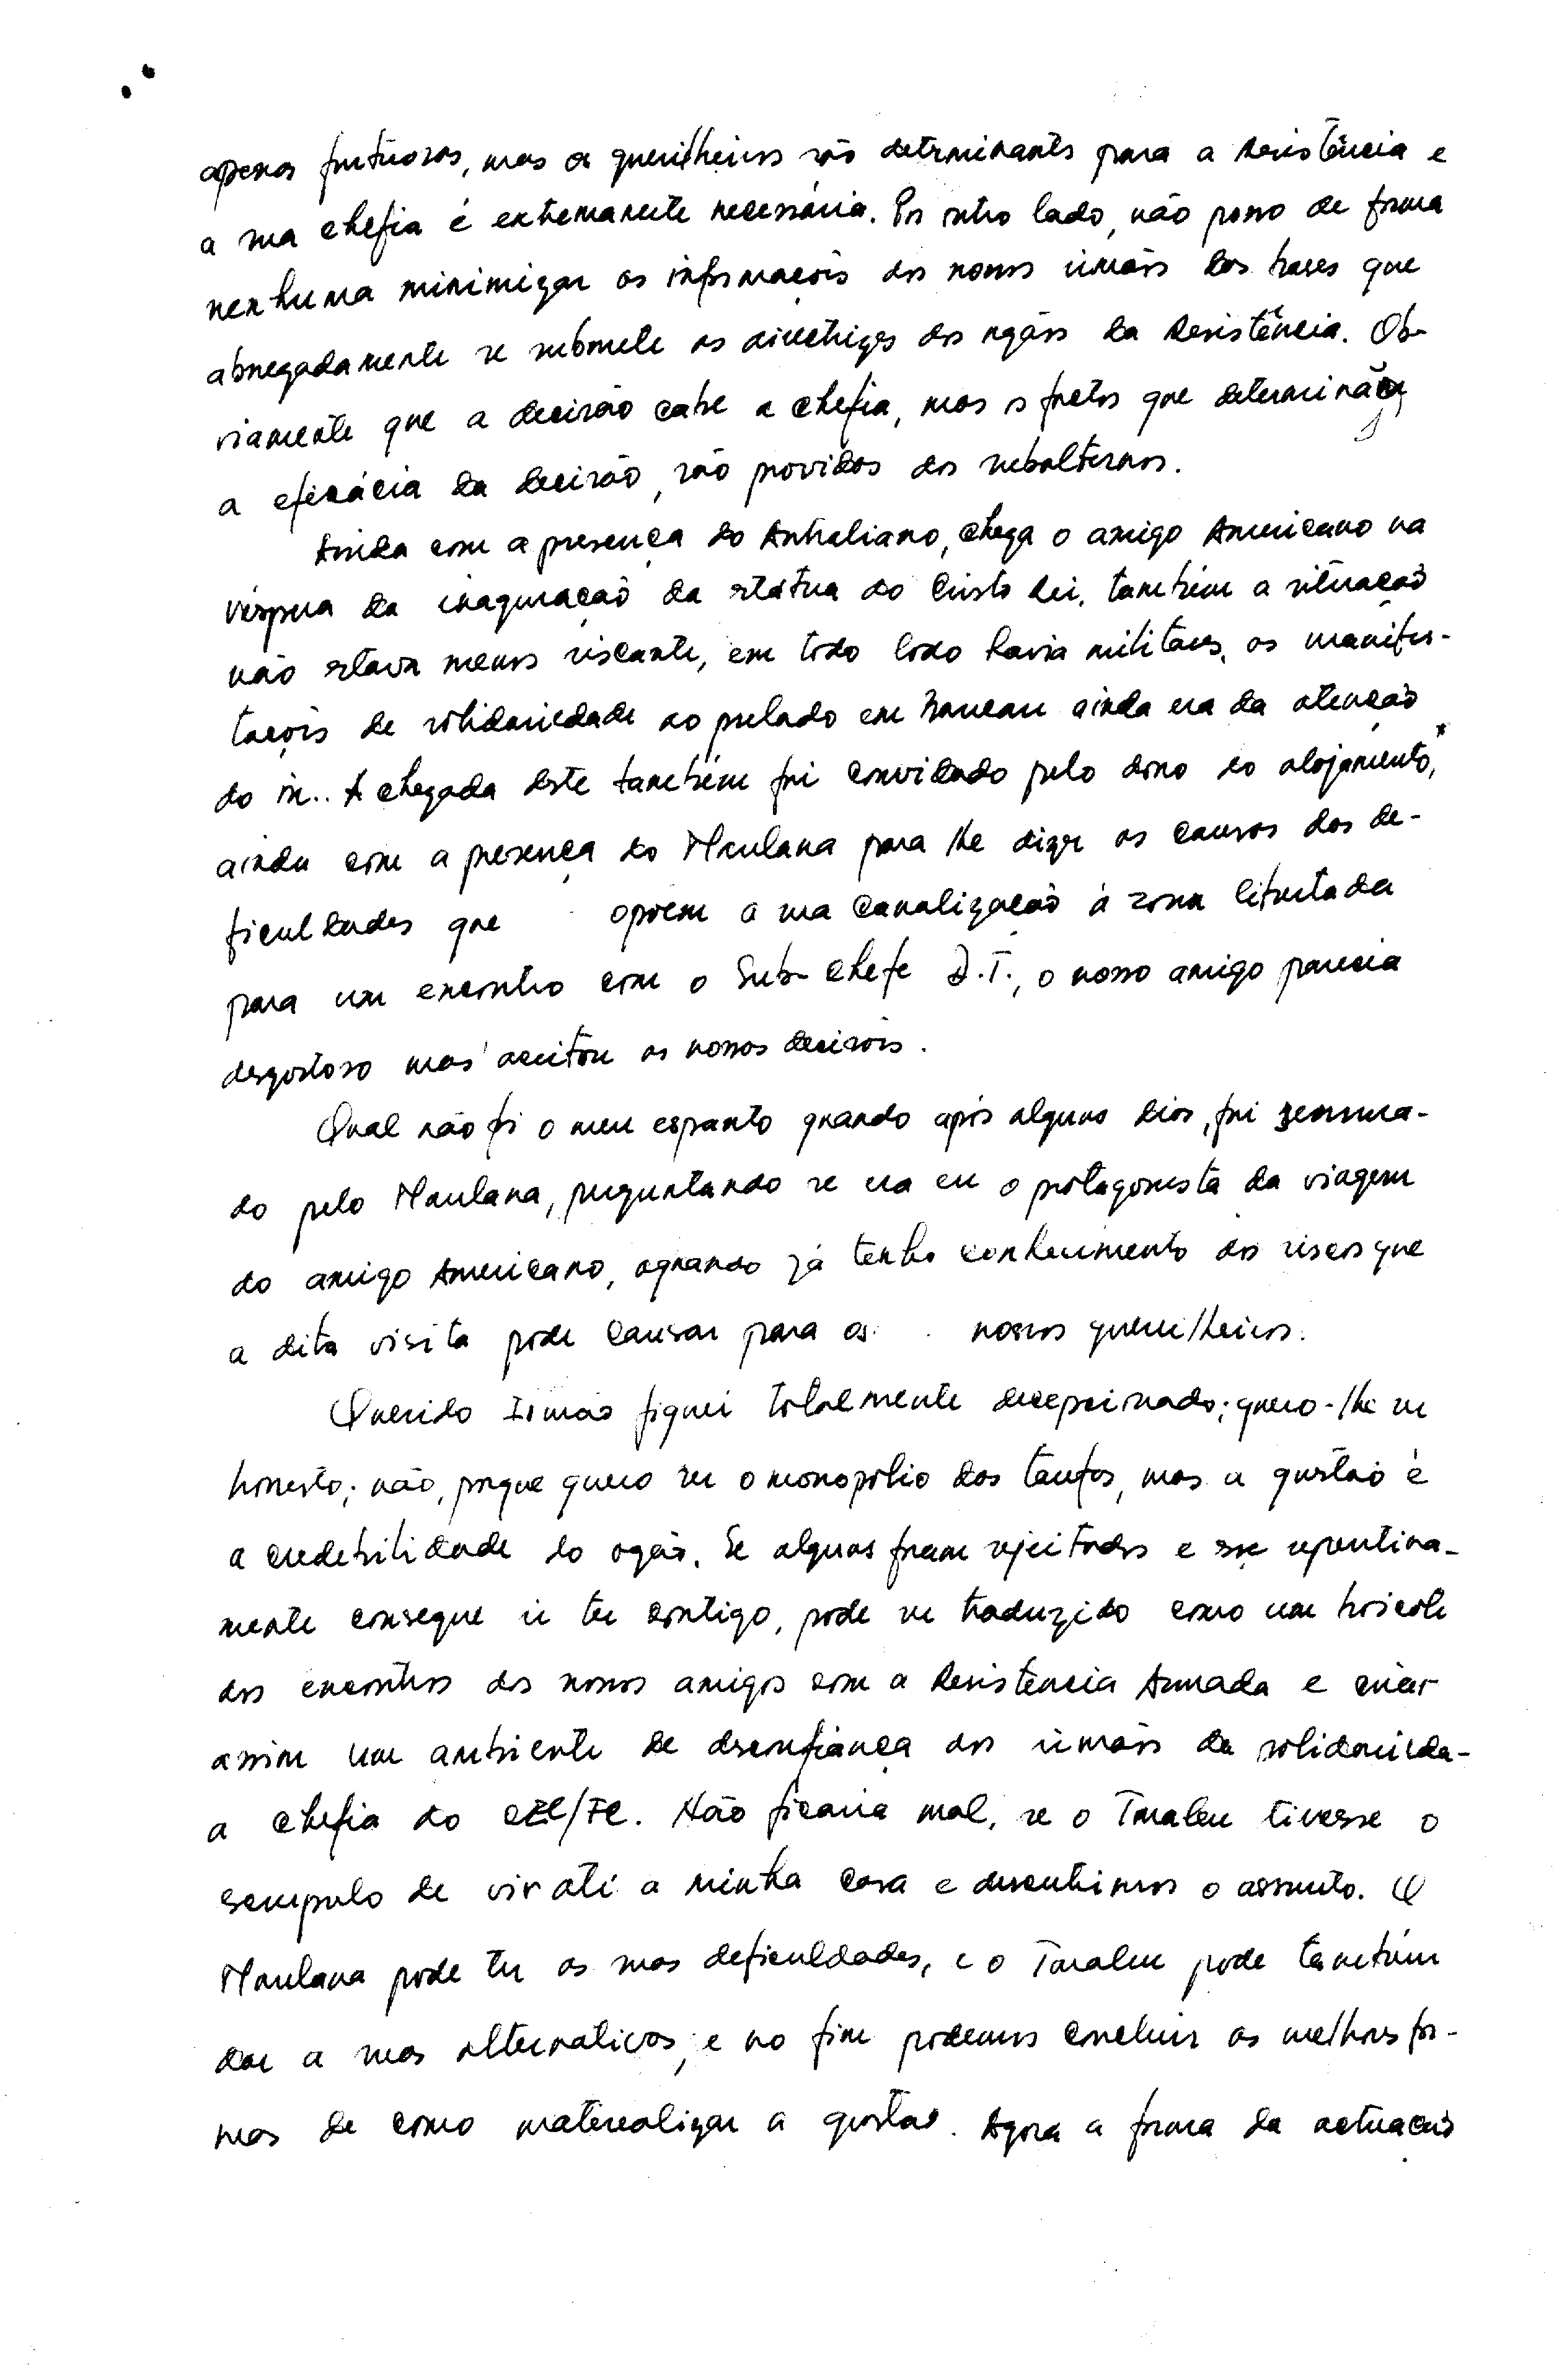 apenas frutuosos, mas os guerilheiros são determinantes para a Resistência e
a sua chefia é extremamente necessária. Por outro lado, não posso de forma
nenhuma minimizar as informações dos nossos irmãos das bases que
abnegadamente se submete as directrizes dos orgãos da Resistência. Ob-
viamente que a decisão cabe a chefia, mas os factos que determinarão
a eficácia da decisão, são provídos dos subalternos.
Ainda com a presença do Australiano, chega o amigo Americano na
véspera da inaguração da státua do Cristo Rei, também a situação
não stava menos riscante, em todo lado havia militares, as manifes-
tações de solidariedade ao prelado em Baucau ainda era da atenção
do in.. A chegada deste também fui convidado pelo dono do alojamento,*
ainda com a presença do Maulana para lhe dizer as causas das de-
ficuldades que opoem a sua canalização á zona libertada
para um encontro com o Sub-Chefe D.T., o nosso amigo parecia
desgostoso mas aceitou as nossas decisões.
Qual não foi o meu espanto quando após alguns dias, fui
do pelo Maulana, perguntando se era eu o protagonista da viagem
do amigo Americano, aquando já tenho conhecimento dos riscos que
a dita visita pode causar para os nossos guerrilheiros.
Querido Irmão fiquei totalmente decepcionado; quero-lhe ser
honesto; não, porque quero ser o monopólio das tarefas, mas a questão é
a credebilidade do orgão. Se alguns foram rejeitados e esse repentina-
mente consegue ir ter contigo, pode ser traduzido como um boicote
dos encontros dos nossos amigos com a Resistencia Armada e criar
assim um ambiente de desconfiança dos irmãos da solidarieda-
a chefia do CEL/FC. Não ficaria mal, se o Tmaleu tivesse o
scrupulo de vir até a minha casa e descutirmos o assunto. O
Maulana pode ter as suas deficuldades, e o Tmaleu pode também
dar a suas alternativas; e no fim podemos concluir as melhores for-
mas de como materealizar a questão. Agora a forma da actuação